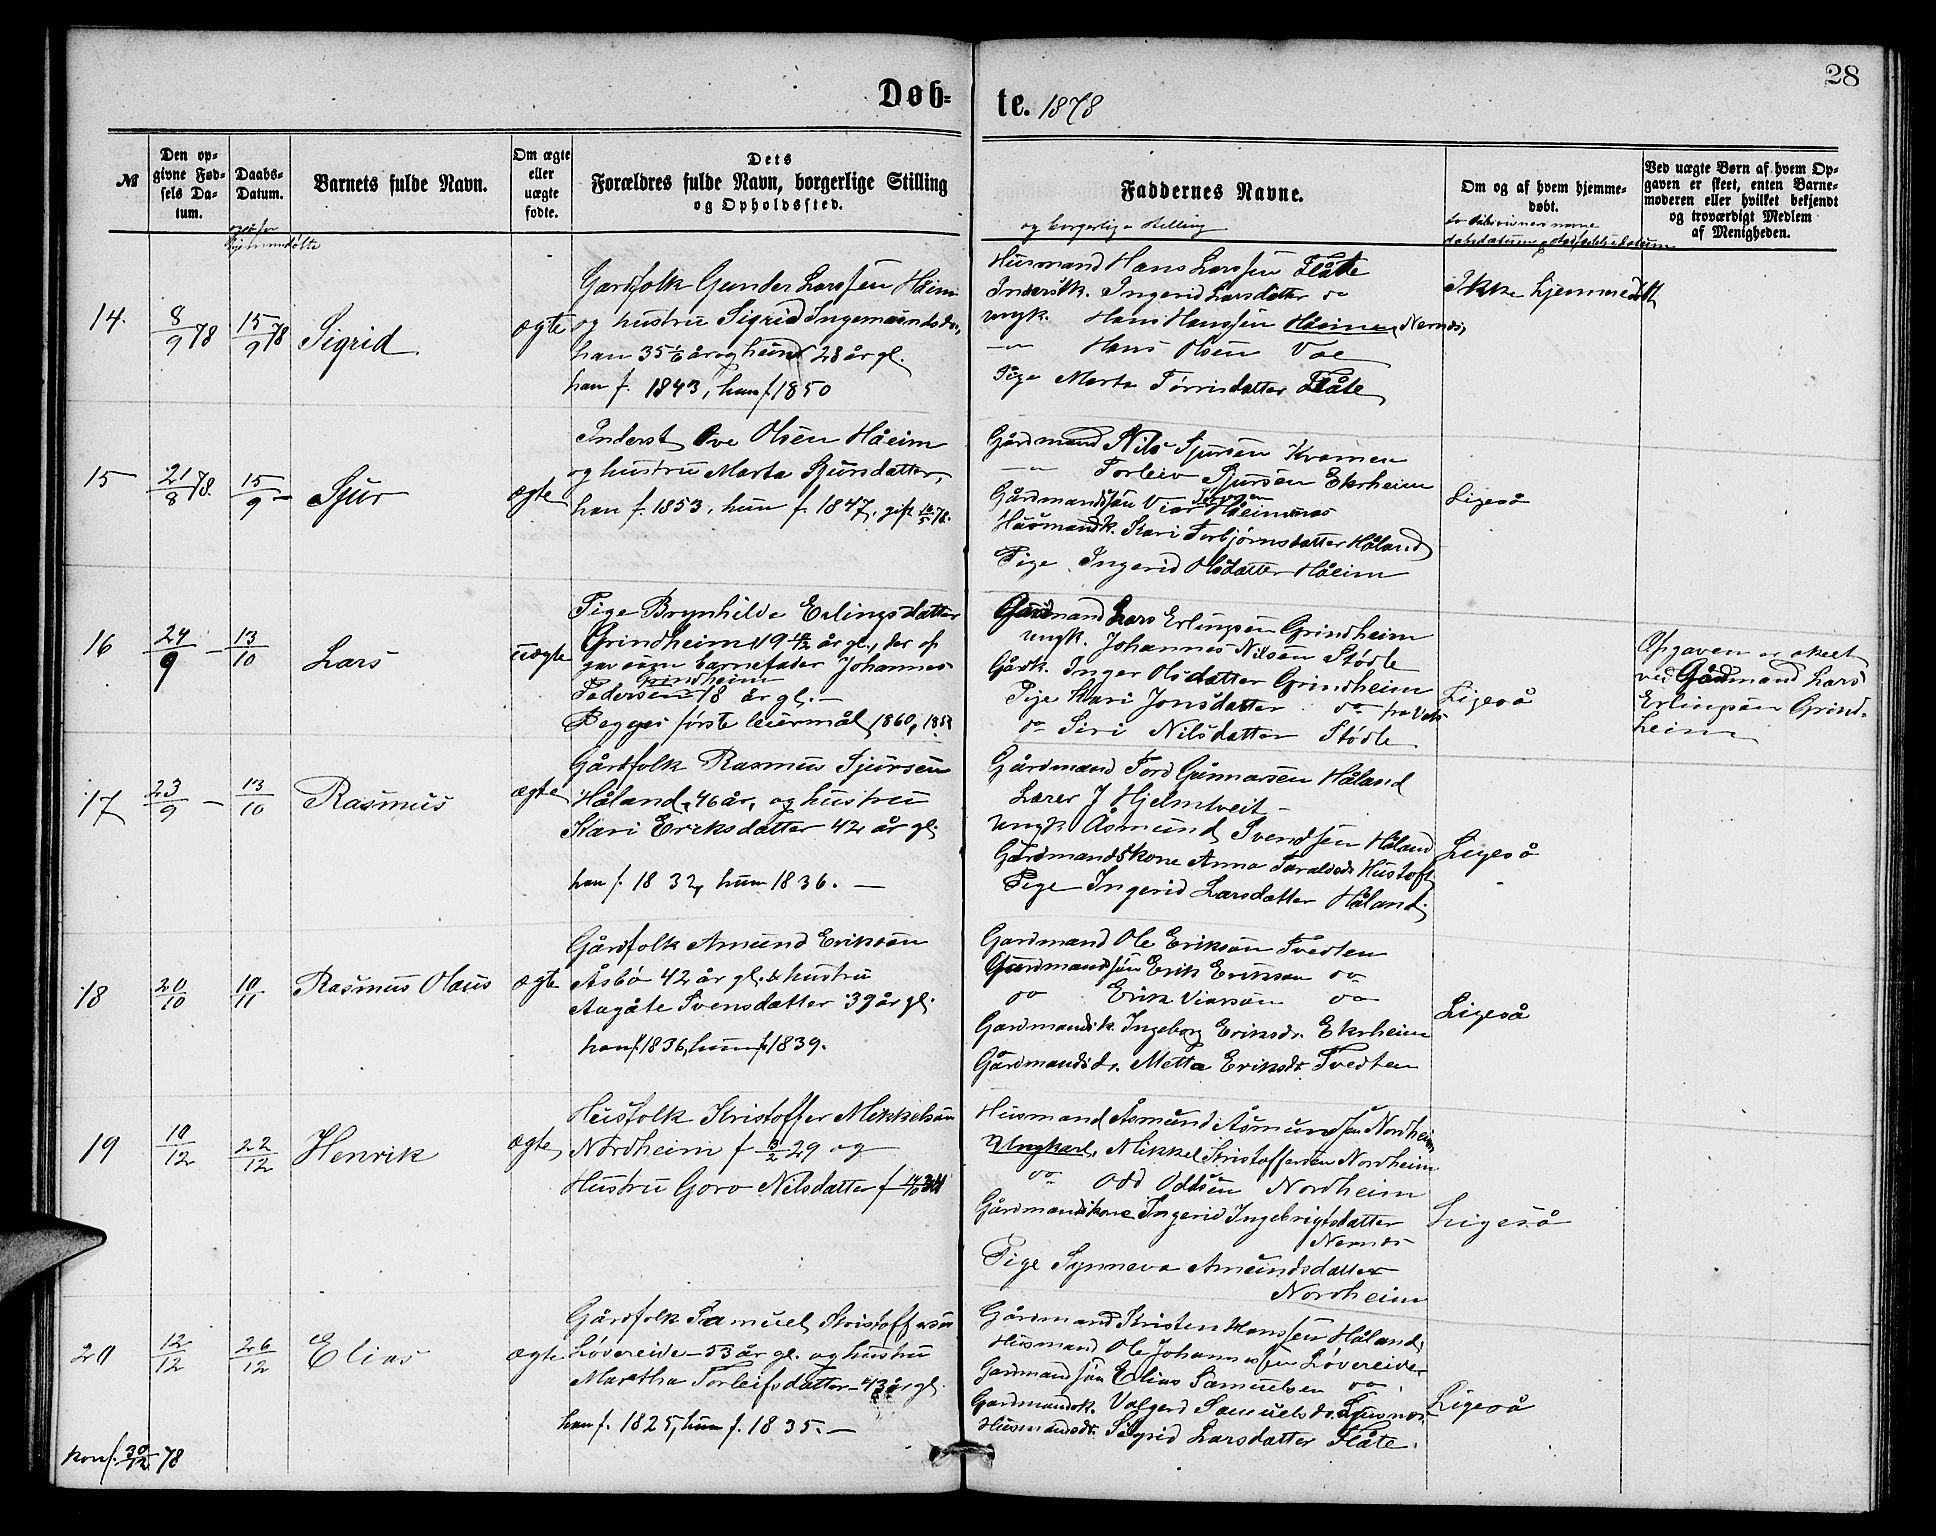 28
Døb-
te. 1878
№
Den op-
givne Fød-
sels Da-
tum.
Daabs-
Datum.
Barnets fulde Navn.
Om ægte
eller
uægte
fødte.
Dets
Forældres fulde Navn, borgerlige Stilling
og Opholdssted.
Faddernes Navne.
og borgerlige stilling
Om og af hvem hjemme-
døbt.
Ved uægte Børn af hvem Op-
gaven er skeet, enten Barne-
moderen eller hvilket bekjendt
og troværdigt Medlem
af Menigheden.
14.
8/9 78
15/9 78
Sigrid
ægte
Gardfolk Gunder Larssen Håeim
og hustru Sigrid Ingemundsdr,
han 35 1/6 år og hun 28 år gl.
han f. 1843, hun f. 1850
Husmand Hans Larssen Flåte
Inderstk. Ingerid Larsdatter do
ungk. Hans Hanssen Håeim, Nernes
—"— Hans Olsen Voe
Pige Marta Tørrisdatter Flåte
Ikke hjemmedøbt
15
21/8 78.
15/9 —
Sjur
ægte
Inderst Ove Olsen Håeim
og hustru Marta Sjursdatter,
han f. 1853, hun f. 1847, gift
Gårdmand Nils Sjursen Kvamen
—"— Torleiv Sjursen Ekrheim
Gårdmandssøn Viar Håeimsnes
Husmandk. Kari Torbjørnsdatter Håland
Pige Ingerid Olsdatter Håeim
Ligeså
16
24/9 —
13/10
Lars
uægte
Pige Brynhilde Erlingsdatter
Grindheim 19 år gl., der op
gav som barnefader Johannes
Grindheim
Pedersen 18 år gl. —
Begges første leiermål 1860,
Gardmand Lars Erlingsen Grindheim
ungk. Johannes Nilsen Stødle
Gårdk. Inger Olsdatter Grindheim
Pige Kari Jonsdatter do
do Siri Nilsdatter Stødle
Ligeså
Opgaven er skeet
ved Gårdmand Lars
Erlingsen Grind-
heim
17
23/9 —
13/10
Rasmus
ægte
Gårdfolk Rasmus Sjursen
Håland, 46 år, og hustru
Kari Eriksdatter 42 år gl.
han f. 1832, hun 1836. —
Gårdmand Tord Gunnarsen Håland
Lærer J Hjelmtveit —
Ungk Åsmund Svendsen Håland
Gårdmandskone Anna Taraldsdr Hustoft
Pige Ingerid Larsdatter Håland.
Ligeså
18
20/10
10/11
Rasmus Olaus
ægte
Gårdfolk Amund Eriksen
Åsbø 42 år gl. & hustru
Aagåte Svensdatter 39 år gl.
han f. 1836, hun f. 1839.
Gardmand Ole Eriksøn Tvedten
Gardmandssøn Erik Eriksøn do
do Erik Viarsøn do
Gardmandsk. Ingeborg Eriksdr. Ekrheim
Gårdmandsdr. Metta Eriksdr Tvedten
Ligeså
19
10/12
22/12
Henrik
ægte
Husfolk Kristoffer Mikkelsøn
Nordheim f 3/2 29 og
Hustru Goro Nilsdatter f 14/10 34
Husmand Åsmund Åsmundsen Nordheim
Ungkarl, Mikkel Kristoffersen Nordheim
do Odd Oddsen Nordheim
Gårdmandskone Ingerid Ingebrigtsdatter
Nernes
Pige Synneva Amundsdatter
Nordheim
Ligeså
20
12/12
26/12
Elias
ægte
Gårdfolk Samuel Kristoffersen
Løvereide — 53 år gl. og hustru
Martha Torleifsdatter — 43 år gl.
han f. 1825, hun f. 1835. —
Gårdmand Kristen Hanssen Håland
Husmand Ole Johannessen Løvereide
Gardmandssøn Elias Samuelsen do.
Gardmandsk. Valgerd Samuelsdr. Sjusnes
Husmandsdr. Sigrid Larsdatter Flåte.
Ligeså
konf. 30/12 78